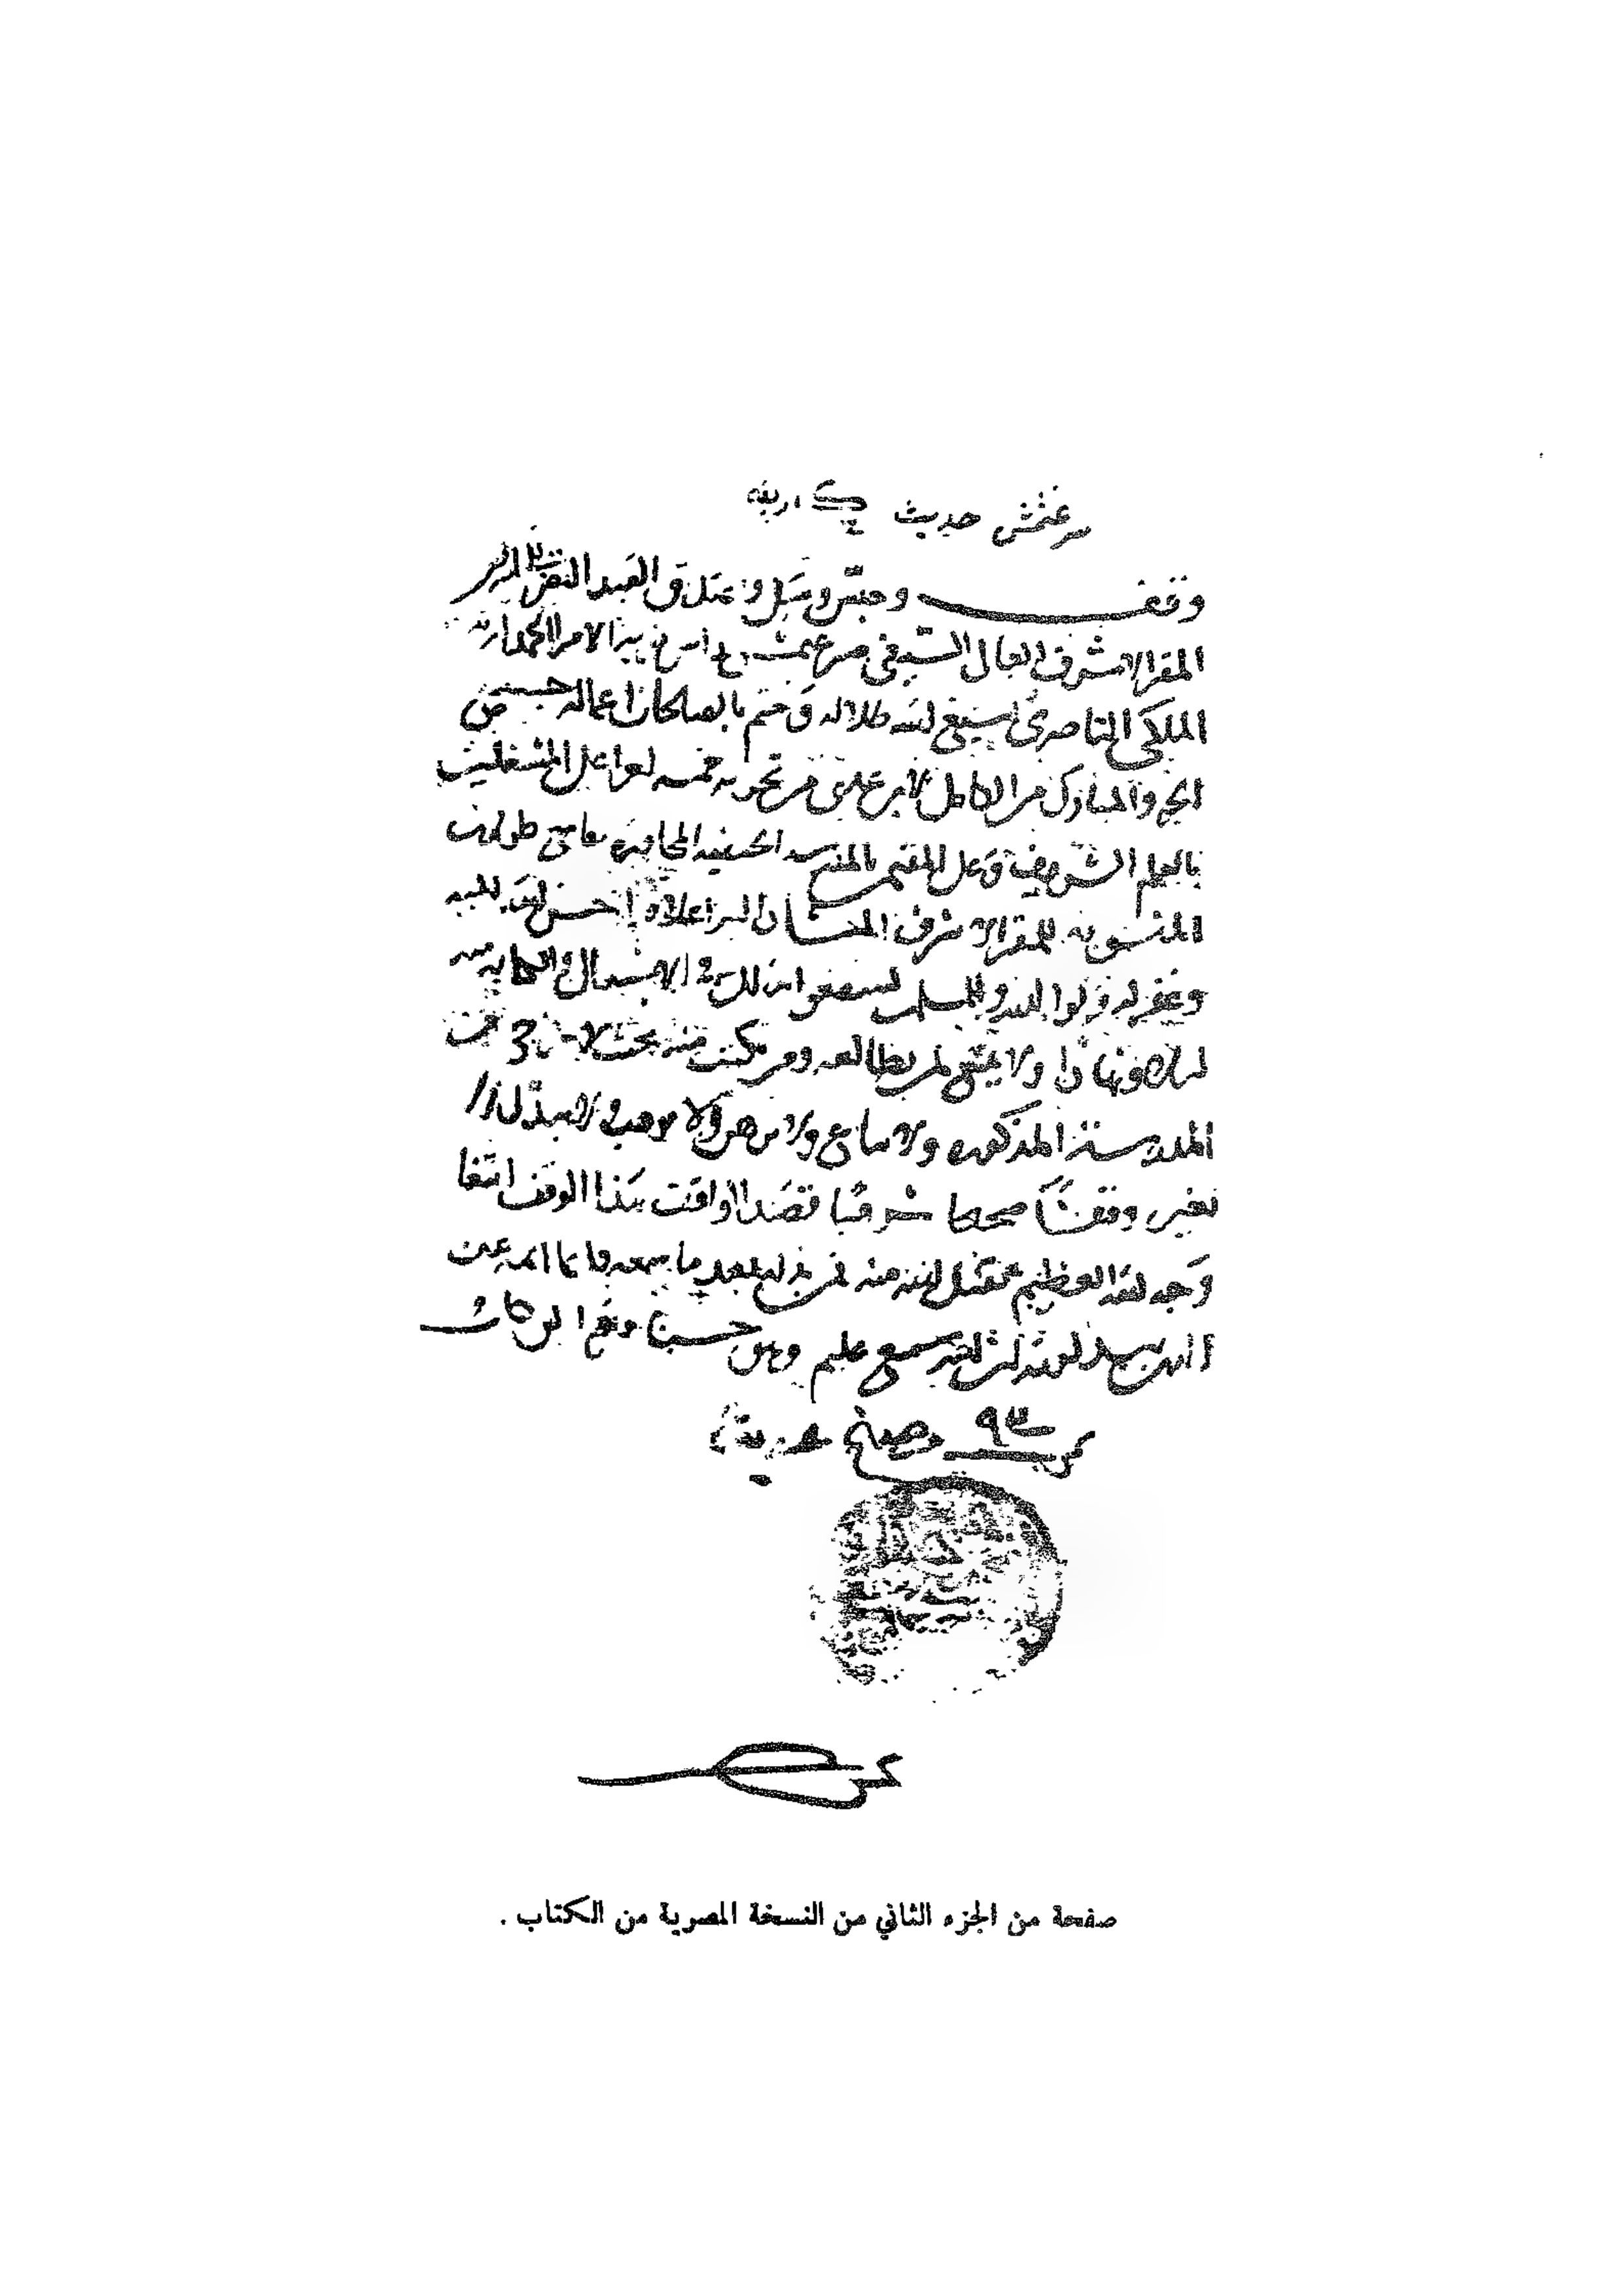 صرغتمش حديث
وقف وحبس وسبل وتصدق العبد الفقير
المقر الأشرف العالي السيفي صرغتمش راس نوبة الامرا الجمدارية
الملكي الناصري اسبغ الله ظلاله وختم بالصالحات اعماله جميع
الجزو المبارك من الكامل لابن عدي تجزية خمسة على المشتغلين
بالعلم الشريف وعلى المقيمين بالمدرسة الحنفية المجاورة بجامع طولون
المنسوبة للمقر الاشرف المشار اليه اعلاه احسن الله اليه
وغفر له ولوالديه وللمسلمين لينتفعوا بذلك في الاشتغال والكتابة منه
ليلا ونهارا ولا يمنع لمن يطالعه ومن يكتب منه بحيث لا يخرج من
المدرسة المذكورة ولا يباع ولا يرهن ولا يوهب ولا يبدل ولا
يغير وقفا صحيحا شرعيا قصد الواقف بهذا الوقف ابتغا
وجه الله العظيم تقبل الله منه فمن بدله بعدما سمعه فانما اثمه على
الذين يبدلونه ان الله سميع عليم وهو حسبنا ونعم الوكيل
٩٣
صفحة من الجزء الثاني من النسخة المصرية من الكتاب .